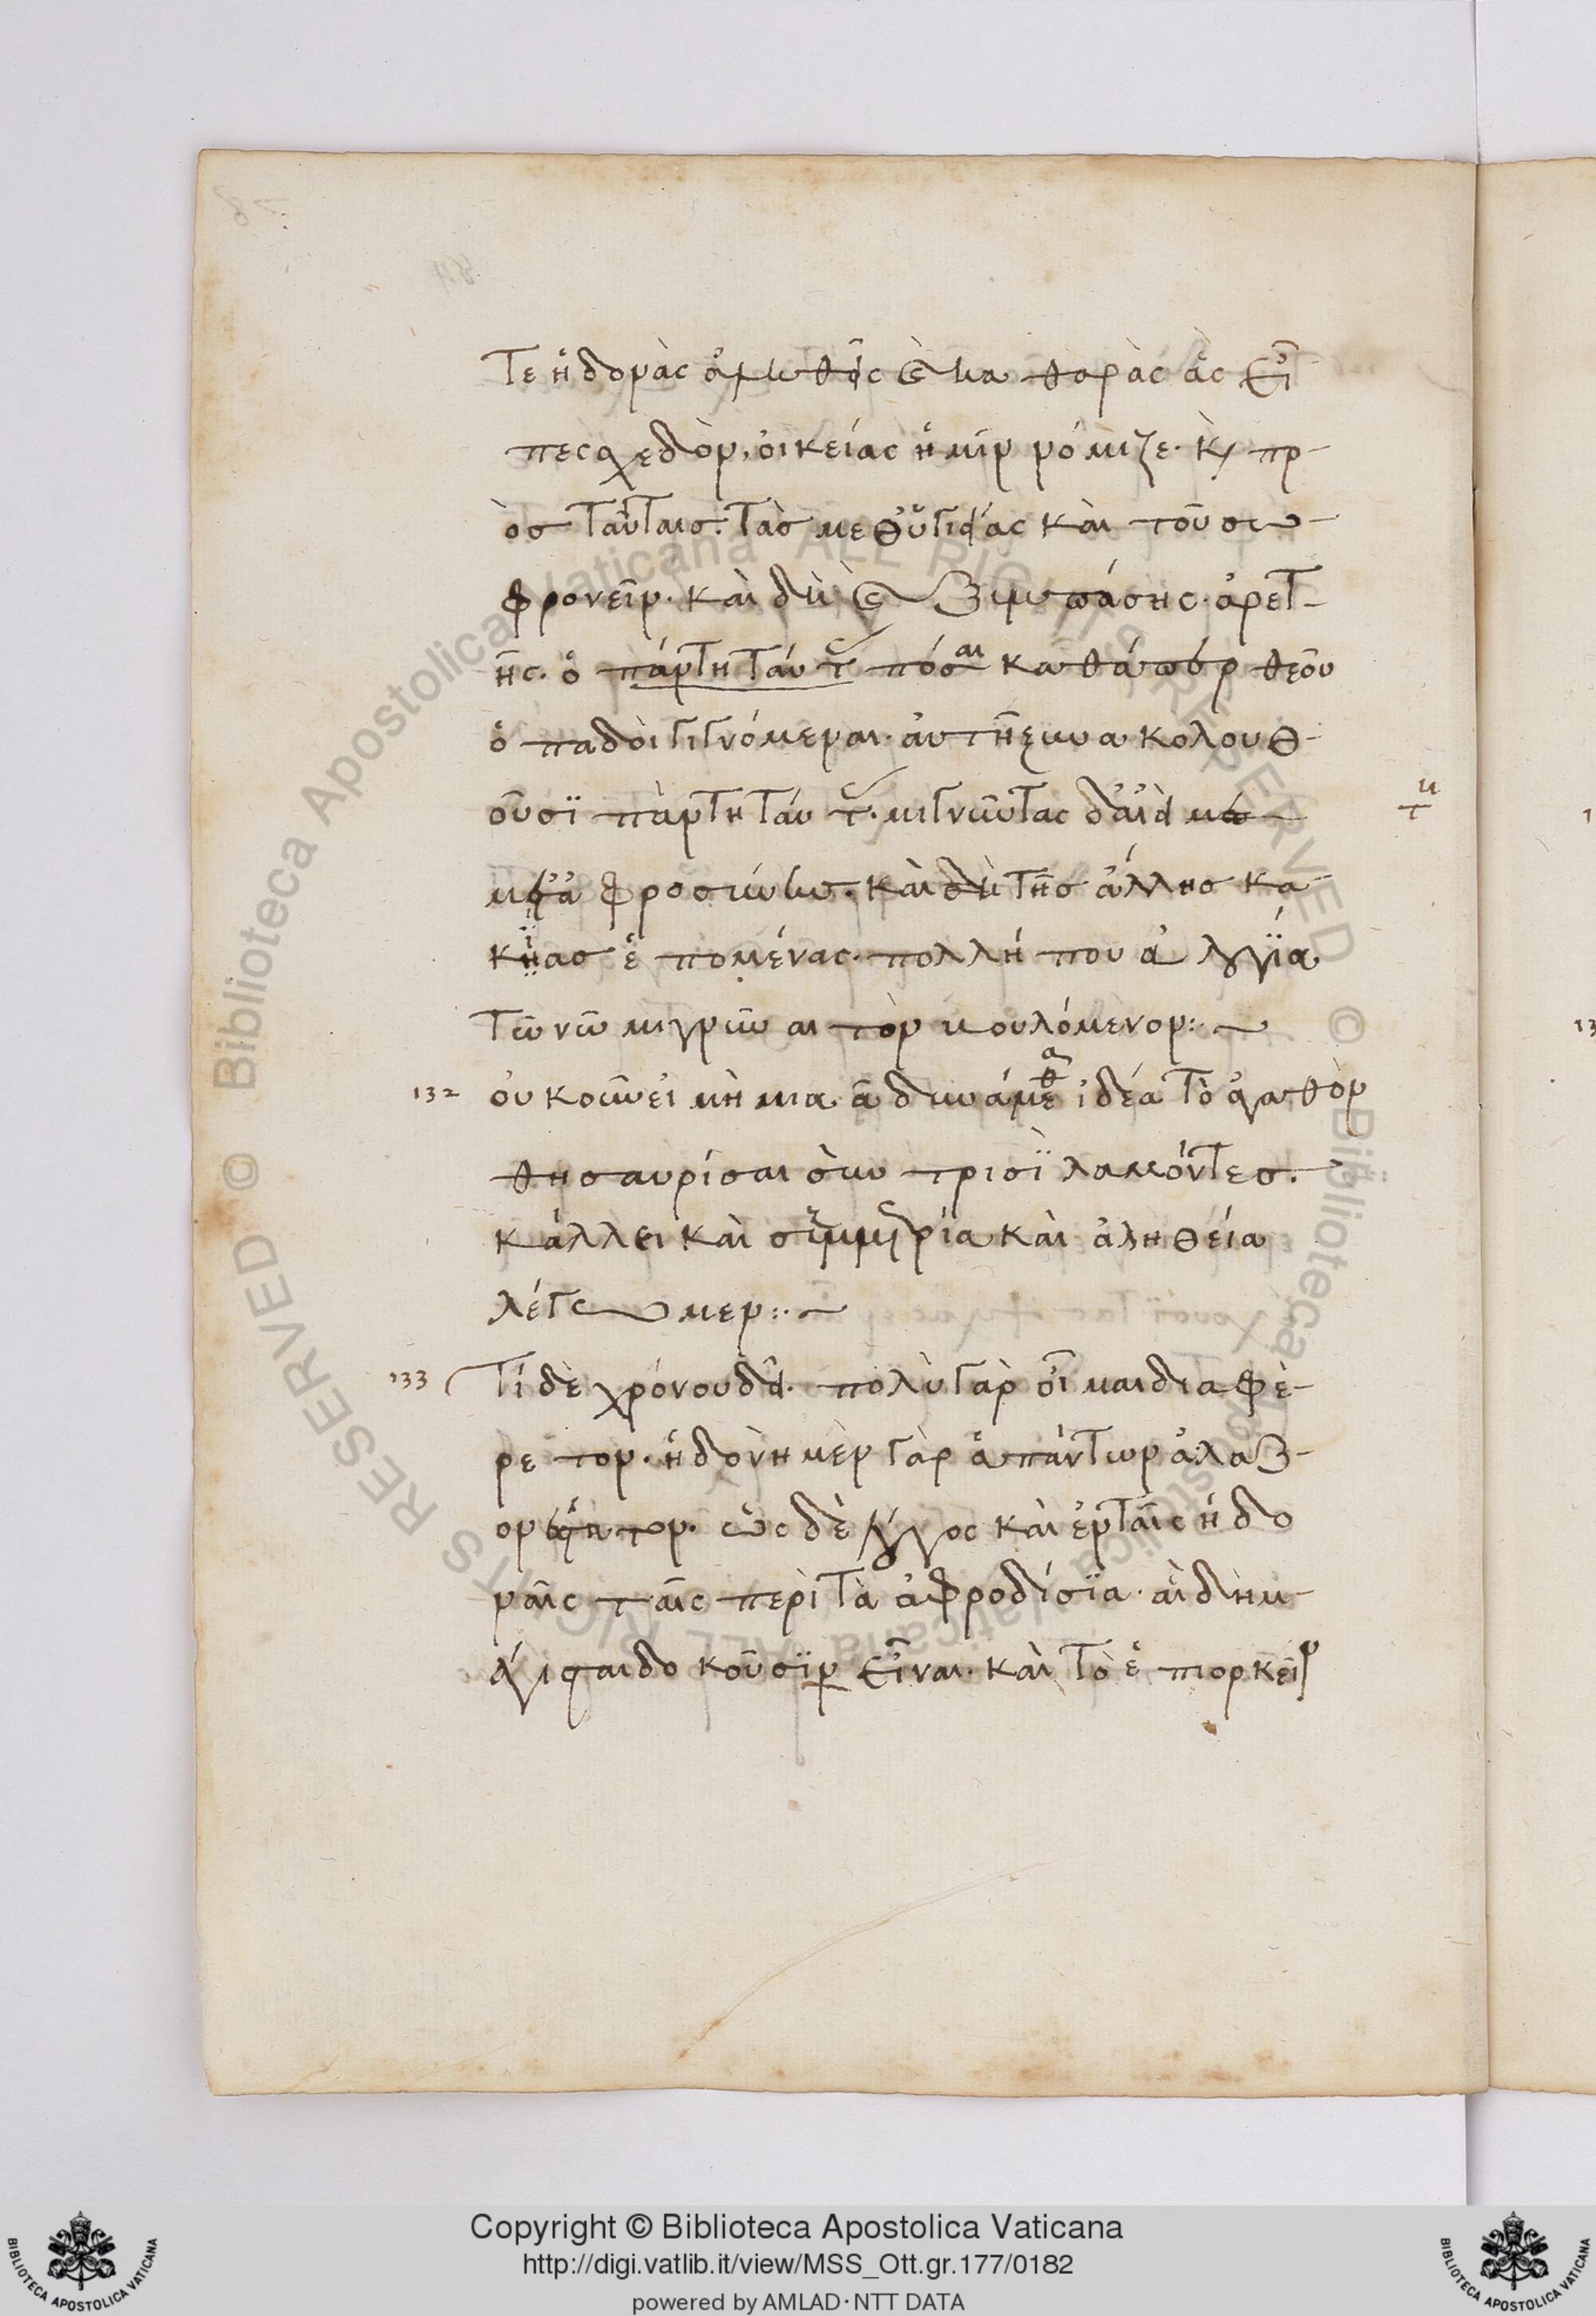 τε ἡδονὰς ἀληθεῖς καὶ καθαρὰς ἃς εἶ
πες σχεδὸν, οἰκείας ἡμῖν νόμιζε. κ πρ-
ὸσ ταύταισ. τὰσ μεθ' ὑγιείας καὶ τοῦ σω-
φρονεῖν. καὶ δὴ καὶ ξυμπάσης. ἀρετ-
ῆς. ὁ πάντη ταύτ πόσαι καθάπερ θεοῦ
ὁ παδοὶ γιγνόμεναι. αὐτῆ ξυνακολουθ-
οῦσϊ πάντη ταύτ. μιγνῦντας
ἀφροσύνης. καὶ τῆσ ἄλλησ κα
κίασ ἑπομένας. πολλή που ἀλογΐα
τῶ νῶ μιγνῦναι τὸν βουλόμενον:~
132 οὐκοῦν εἰ μὴ μιᾶ δυνάμεθα ἰδέα τὸ ἀγαθὸν
θησαυρίσαι σὺν τρισῒ λαβόντεσ.
κάλλει καὶ συμμετρία καὶ ἀληθεία
λέγωμεν:~
133 Τί δὲ χρόνου δεῖ. πολὺ γὰρ οἶμαι διαφέ-
ρετον. ἡδονὴ μὲν γὰρ ἁπάντων ἀλαζ-
ον τον. ὡς δὲ λόγος καὶ ἐν ταῖς ἡδο
ναῖς ταῖς περὶ τὰ ἀφροδίσϊα. αἳ δὴ μ-
έγισται δοκοῦσϊν εἶναι. καὶ τὸ ἐπιορκεῖν
Copyright © Biblioteca Apostolica Vaticana
http://digi.vatlib.it/view/MSS_Ott.gr.177/0182
powered by AMLAD·NTT DATA